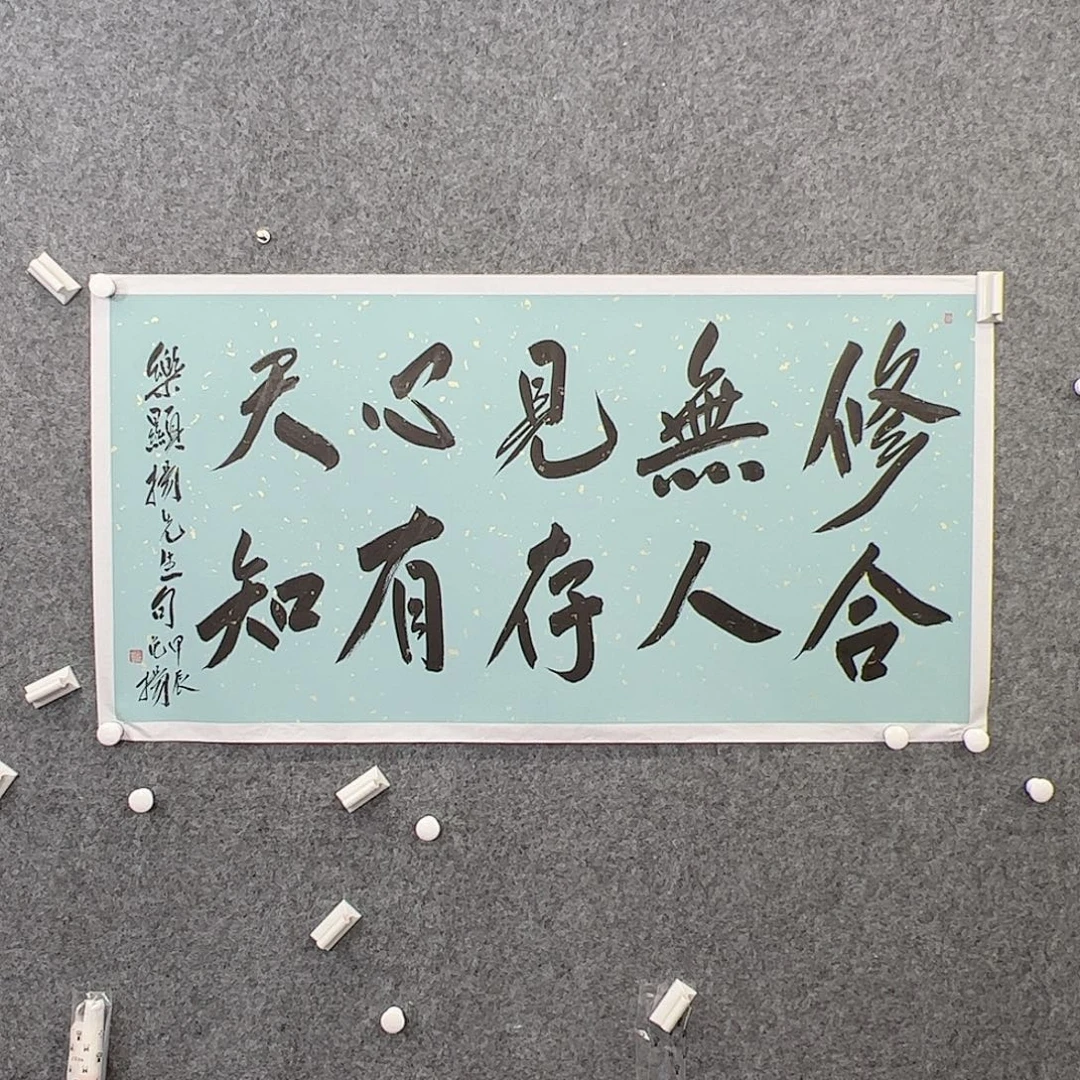 修合
無人
見存
心有
天知
樂顯揚先生句
甲辰
揚